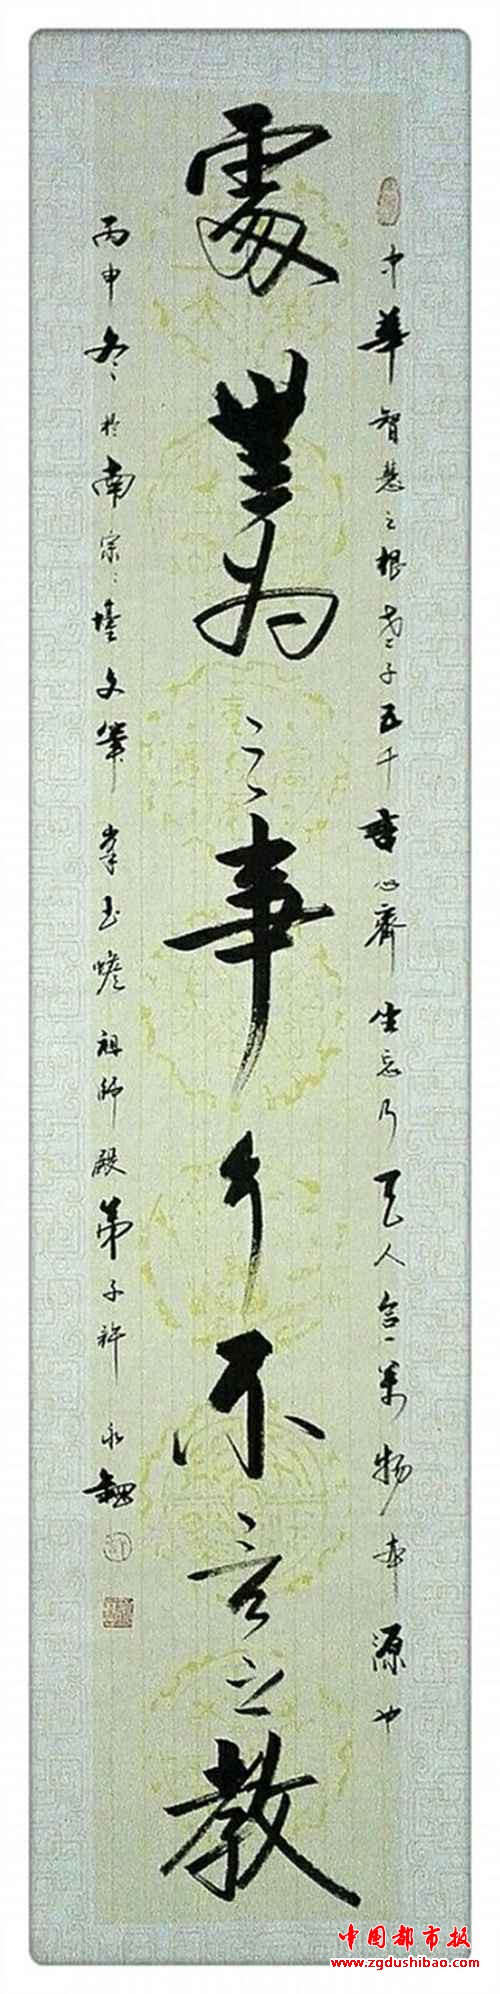 中華智慧之根老子五千言心齊坐忘乃天人合一萬物本源也
處無為之事行不言之教
丙申冬於南宗〻壇文筆峯玉蟾祖師殿弟子許永
中国都市报
www.zgdushibao.com